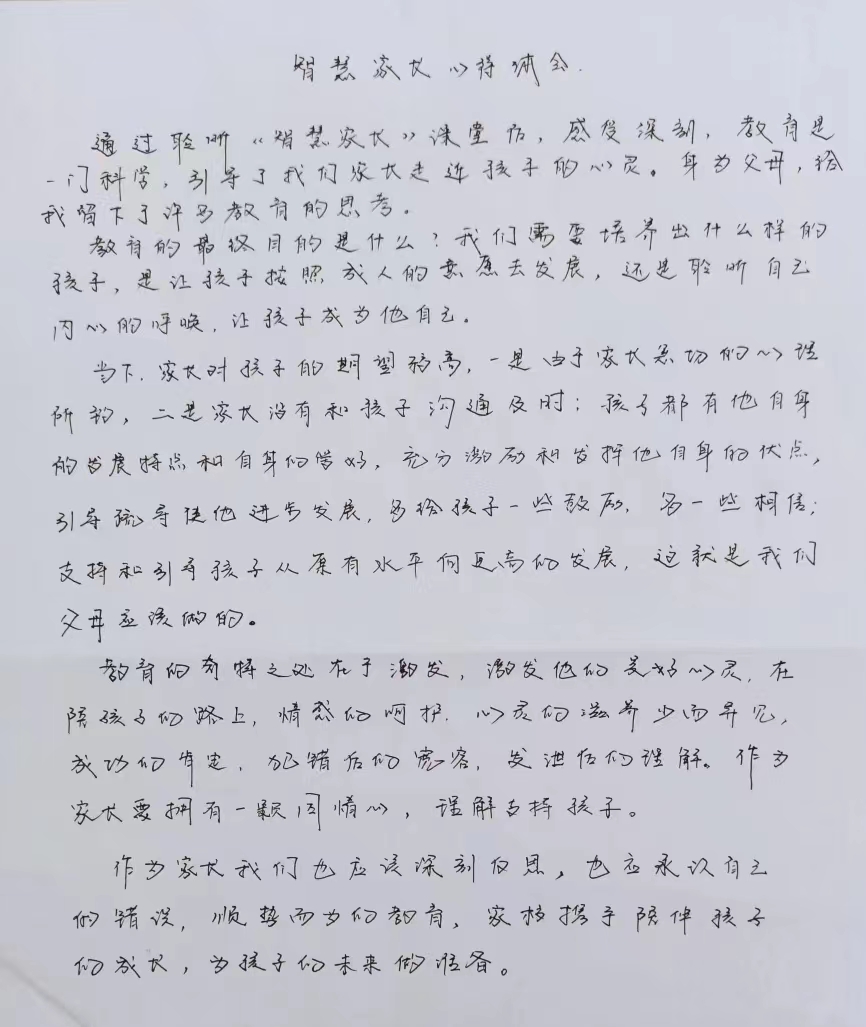 智慧家长心得体会.
通过聆听《智慧家长》课堂后，感受深刻，教育是
一门科学，引导了我们家长走进孩子的心灵。身为父母，给
我留下了许多教育的思考。
教育的最终目的是什么？我们需要培养出什么样的
孩子，是让孩子按照成人的意愿去发展，还是聆听自己
内心的呼唤，让孩子成为他自己。
当下，家长对孩子的期望稍高，一是由于家长急功的心理
所致，二是家长没有和孩子沟通及时；孩子都有他自身
的发展特点和自身的学好，充分激励和发挥他自身的优点，
引导疏导使他进步发展，多给孩子一些鼓励，多一些相信；
支持和引导孩子从原有水平向更高的发展，这就是我们
父母应该做的。
教育的奇特之处在于激发，激发他们美好心灵，在
陪孩子的路上，情感的呵护，心灵的滋养少而异见，
成功的肯定，犯错后的宽容，发泄后的理解。作为
家长要拥有一颗同情心，理解支持孩子。
作为家长我们也应该深刻反思，也应承认自己
的错误，顺势而为的教育，家校携手陪伴孩子
的成长，为孩子的未来做准备。